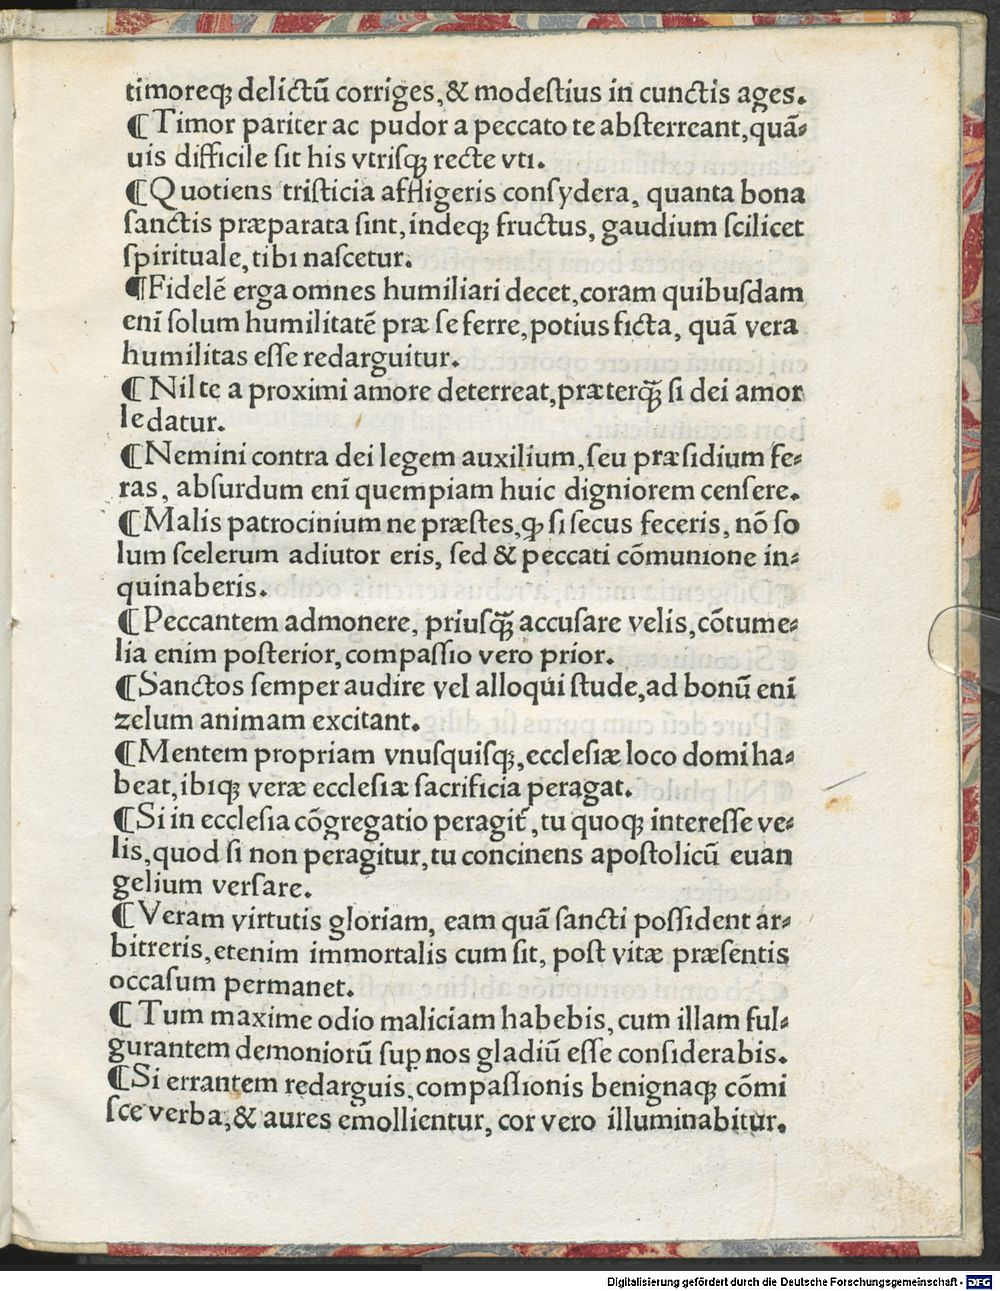 timoreqꝫ delictū corriges,& modeſtius in cunctis ages.
¶Timor pariter ac pudor a peccato te abſterreant,quā⸗
uis difficile ſit his vtriſqꝫ recte vti.
¶Quotiens triſticia affligeris conſydera, quanta bona
ſanctis præparata ſint,indeqꝫ fructus, gaudium ſcilicet
ſpirituale,tibi naſcetur.
¶Fidelē erga omnes humiliari decet,coram quibuſdam
enī ſolum humilitatē præ ſe ferre,potius ficta, quā vera
humilitas eſſe redarguitur.
¶Nil te a proximi amore deterreat,præterqꝫ̄ ſi dei amor
ledatur.
¶Nemini contra dei legem auxilium,ſeu præſidium fe⸗
ras, abſurdum enī quempiam huic digniorem cenſere.
¶Malis patrocinium ne præſtes,ꝙ ſi ſecus feceris, nō ſo
lum ſcelerum adiutor eris, ſed & peccati cōmunione in⸗
quinaberis.
¶Peccantem admonere, priuſqꝫ̄ accuſare velis,cōtume⸗
lia enim poſterior,compaſſio vero prior.
¶Sanctos ſemper audire vel alloqui ſtude,ad bonū enī
zelum animam excitant.
¶Mentem propriam vnuſquiſqꝫ,eccleſiæ loco domi ha⸗
beat,ibiqꝫ veræ eccleſiæ ſacrificia peragat.
¶Si in eccleſia cōgregatio peragit᷑,tu quoqꝫ intereſſe ve⸗
lis,quod ſi non peragitur,tu concinens apoſtolicū euan
gelium verſare.
¶Veram virtutis gloriam, eam quā ſancti poſſident ar⸗
bitreris,etenim immortalis cum ſit, poſt vitæ præſentis
occaſum permanet.
¶Tum maxime odio maliciam habebis,cum illam ful⸗
gurantem demoniorū ſuꝑ nos gladiū eſſe conſiderabis.
¶Si errantem redarguis,compaſſionis benignaqꝫ cōmi
ſce verba,& aures emollientur, cor vero illuminabitur.
Digitalisierung gefördert durch die Deutsche Forschungsgemeinschaft - DFG